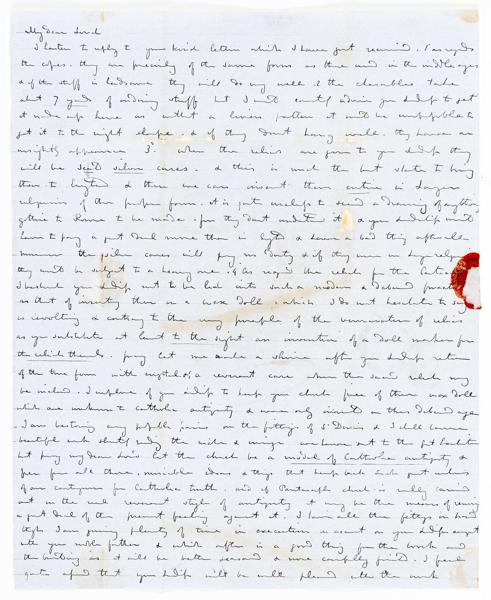 My dear Lord
I hasten to reply to your kind letter which I have just received. 1 as regards
the copes. they are precisely of the same form as those used in the middle ages
& if the stuff is handsome they will do very well & the chasubles take
about 7 yards of ordinary stuff but I must earnestly advise your Lordship to get
it made up here as without a living pattern it will be impossible to
get it to the right shape. & if they dont hang well. they have an
unsightly appearance 3º when the relics are given to your Lordship they
will be in silver cases. & this is much the best state to bring
them to England & there we can insert them entire in larger
reliquaries of the proper form. it is quite useless to send a drawing of anything
gothic to Rome to be made. for they dont understand it & your Lordship would
have to pay a great deal more than in England & have a bad thing after all.
moreover the silver cases will pay no duty & if they were in large reliquaries
they would be subject to a heavy one. 4 As regards the relics for the
I beseech your Lordship not to be led into such a modern & debased practice
as that of inserting them in a wax doll. which I do not hesitate to say
is revolting & contrary to the very principle of the veneration of relics
as you substitute at least to the sight an invention of a doll maker for
the relick themselves. pray let me make a shrine after your Lordships return
of the true form with crystals & a reverent case where the said relicks may
be inclosed. I implore of your Lordship to keep your church free of these wax dolls
which are unknown to Catholic antiquity & were only invented in these debased ages
I am bestowing every possible pains on the fittings of & I shall have
beautiful work shortly ready the
but pray my dear Lord let the church be a model of Catholic antiquity &
free from all these miserable ideas & things that keep back such great
of our countrymen from Catholic truth. and if church is really carried
out in the real reverent style of antiquity it may be the means of removing
a great deal of the present feeling against it. I have all these fittings in hand
though I am giving plenty of time in execution on account of your Lordships
after your noble father & which after is a good thing for the work and
the building as it will be better seasoned & more carefully finished. I feel
quite assured that your Lordship will be well pleased with the work